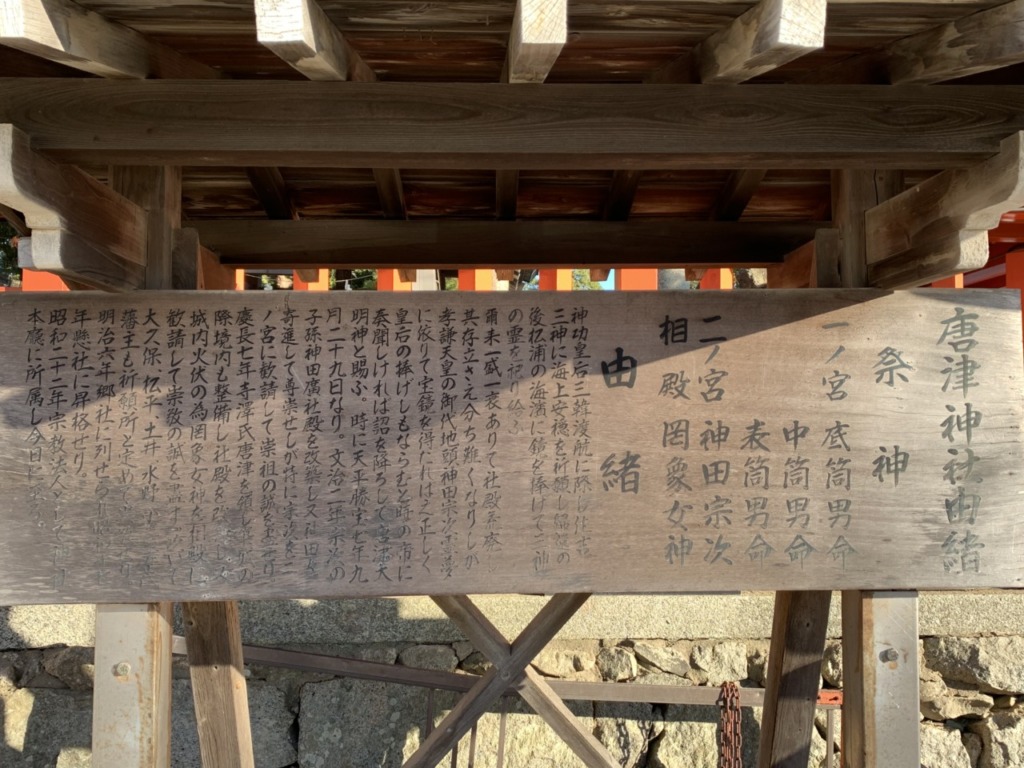 唐津神社由緒
祭神
一ノ宮 底筒男命
中筒男命
表筒男命
二ノ宮 神田宗次
相殿 罔象女神
由緒
神功皇后三韓渡航に際し
三神に海上安穏を祈願し の
後松浦の海濱に鏡を捧げて三神
の霊を祀り給ふ
爾来一盛一衰ありて社殿
其存立さえ分ち難くなりしが
孝謙天皇の御代地頭神田宗次
に依りて宝鏡を得たればこれ正しく
皇后の捧げしもならむと時の帝に
奏聞しければ詔を降ろして唐津大
明神と賜ふ。時に天平勝宝七年九
月二十九日なり。文治二年宗次の
子孫神田廣社殿を改築し又神田
寄進して尊崇せしが特に宗次を二
ノ宮に歓請して崇祖の誠を
慶長七年寺澤氏唐津を領し
際境内も整備し社殿を
城内火伏の為罔象女神を
歓請して崇敬の誠を
大久保、松平、土井、水野、
藩主も祈願所と定め
明治六年郷社に列せ
年縣社に昇格せり。
昭和二十二年宗教法人として神社
本廳に所属し今日に